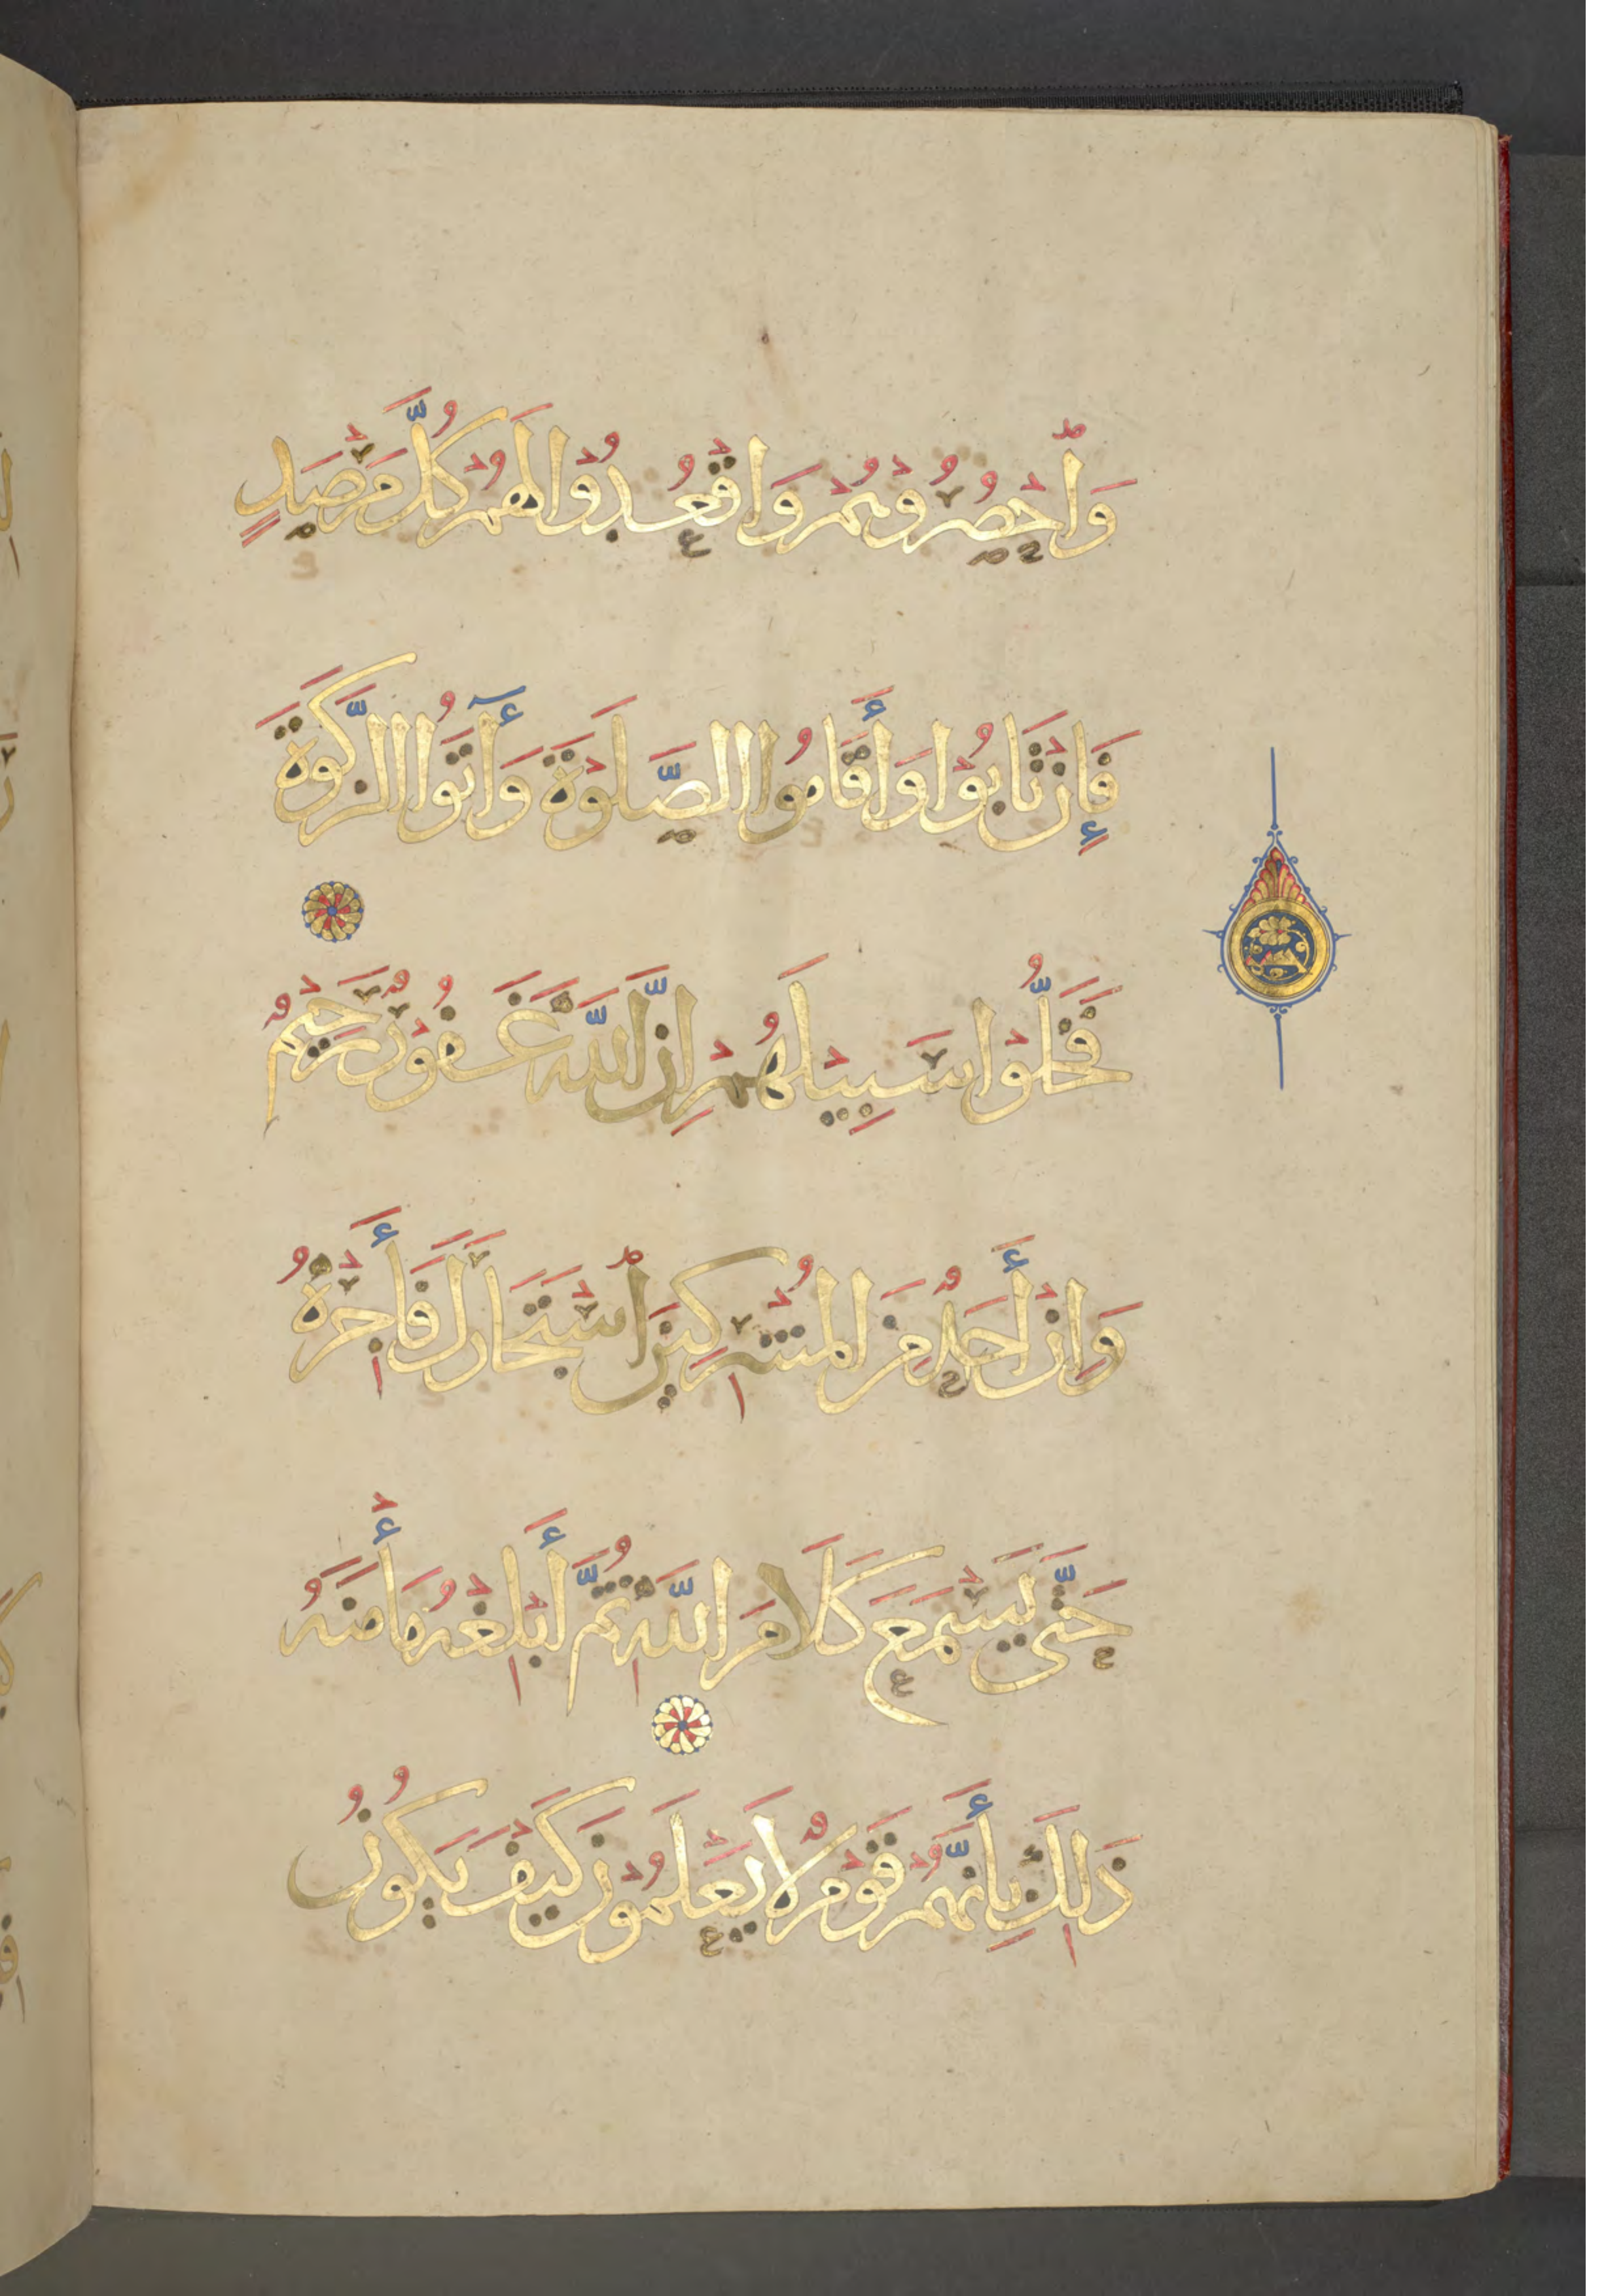 وَاحْصُرُوْهُمْ وَاقْعُدُوْا لَهُمْ كُلَّ مَرْصَدٍ
فَإِنْ تَابُوْا وَأَقَامُوا الصَّلَوْةَ وَأٓتَوُا الزَّكَوةَ
فَخَلُّوْا سَبِيْلَهُمْ اِنَّ اللَّهَ غَفُوْرٌ رَحِيْمٌ
وَاِنْ أَحَدٌ مِنَ الْمُشْرِكِينَ اسْتَجَارَكَ فَأَجِرْهُ
حَتَّى يَسْمَعَ كَلَامَ اللَّهِ ثُمَّ أَبْلِغْهُ مَأْمَنَهُ
ذَلِكَ بِأَنَّهُمْ قَوْمٌ لَا يَعْلَمُوْنَ كَيْفَ يَكُونُ